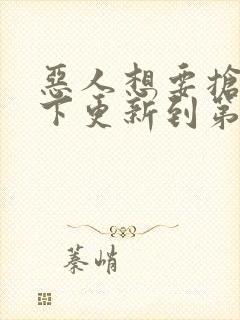 惡人想要搶
下更新到第
蓁峭